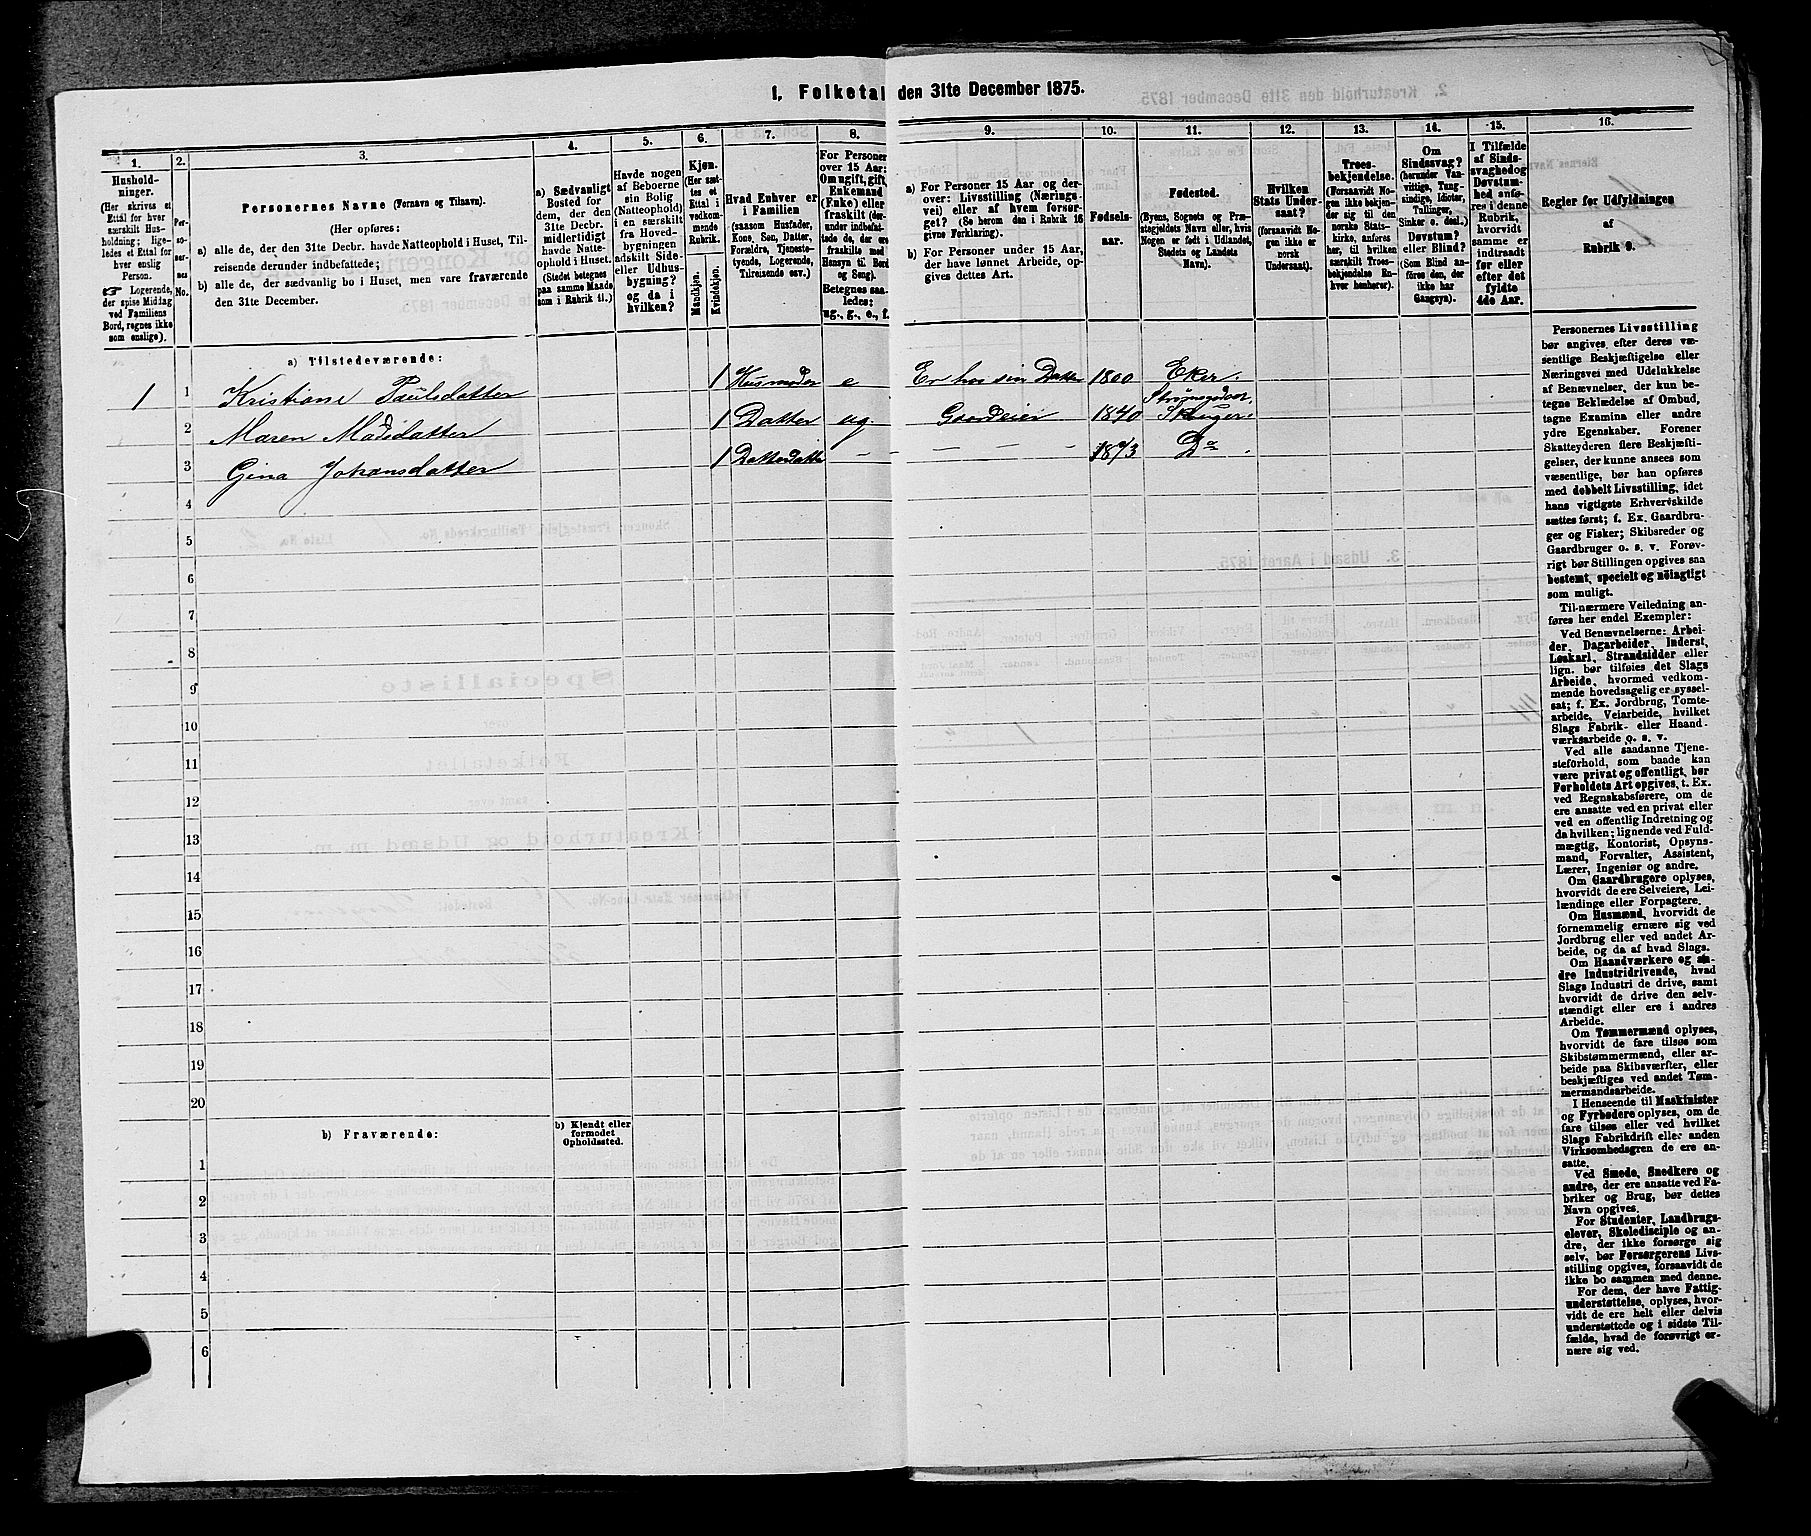 1. Folketal den 31te December 1875.
1.
Hushold-
ninger.
(Her skrives et
Ettal for hver
særskilt Hus-
holdning; lige-
ledes et Ettal for
hver enslig
Person.
☞ Logerende,
der spise Middag
ved Familiens
Bord, regnes ikke
som enslige).
2.
Per-
so-
ner-
nes
No.
3.
Personernes Navne (Fornavn og Tilnavn).
(Her opføres:
a) alle de, der den 31te Decbr. havde Natteophold i Huset, Til-
reisende derunder indbefattede;
b) alle de, der sædvanlig bo i Huset, men vare fraværende
den 31te December.
4.
a) Sædvanligt
Bosted for
dem, der den
31te Decbr.
midlertidigt
havde Natte-
ophold i Huset.
(Stedet betegnes
paa samme Maade
som i Rubrik 11.)
5.
Havde nogen
af Beboerne
sin Bolig
(Natteophold)
i en særskilt
fra Hoved-
bygningen
adskilt Side-
eller Udhus-
bygning?
og da i
hvilken?
6.
Kjøn.
(Her sæt-
tes et
Ettal i
vedkom-
mende
Rubrik.
Mandkjøn.
Kvindekjøn.
7.
Hvad Enhver er
i Familien
(saasom Husfader,
Kone, Søn, Datter,
Forældre, Tjeneste-
tyende, Logerende,
Tilreisende osv.)
8.
For Personer
over 15 Aar:
Om ugift, gift,
Enkemand
(Enke) eller
fraskilt (der-
under indbefat-
tede de, der ere
fraskilte med
Hensyn til Bord
og Seng).
Betegnes saa-
ledes:
ug., g., e., f.
9.
a) For Personer 15 Aar og der-
over: Livsstilling (Nærings-
vei) eller af hvem forsør-
get? (Se herom den i Rubrik 16
givne Forklaring).
b) For Personer under 15 Aar,
der have lønnet Arbeide, op-
gives dettes Art.
10.
Fødsels-
aar.
11.
Fødested.
(Byens, Sognets og Præ-
stegjeldets Navn eller, hvis
Nogen er født i Udlandet,
Stedets og Landets
Navn).
12.
Hvilken
Stats Under-
saat?
(forsaavidt No-
gen ikke er
norsk
Undersaat).
13.
Troes-
bekjendelse.
(Forsaavidt No-
gen ikke bekjen-
der sig til den
norske Stats-
kirke, anføres
her, til hvilken
særskilt Troes-
bekjendelse En-
hver henhører).
14.
Om
Sindssvag?
(herunder Van-
vittige, Tung-
sindige, Idioter,
Tullinger,
Sinker o. desl.)
Døvstum?
eller Blind?
(Som Blind an-
føres den, der
ikke har
Gangsyn).
15.
I Tilfælde
af Sinds-
svaghed og
Døvstum-
hed anfø-
res i denne
Rubrik,
hvorvidt
samme er
indtraadt
før eller
efter det
fyldte
4de Aar.
16.
Regler for Udfyldningen
af
Rubrik 9.
a) Tilstedeværende:
1 1 Kristiane Paulsdatter 1 Husmoder e Er hos sin Datter 1800 Eker.
2 Maren Madsdatter 1 Datter ug. Gaardeier 1840 Strømsgodset, Skouger
3 Gina Johansdatter 1 Datterdatter — — — — 1873 Do.
4
5
6
7
8
9
10
11
12
13
14
15
16
17
18
19
20
b) Fraværende:
b) Kjendt eller
formodet
Opholdssted.
1
2
3
4
5
6
Personernes Livsstilling
bør angives efter deres væ-
sentlige Beskjæftigelse eller
Næringsvei med Udelukkelse
af Benævnelser, der kun be-
tegne Beklædelse af Ombud,
tagne Examina eller andre
ydre Egenskaber. Forener
Skatteyderen flere Beskjæfti-
gelser, der kunne ansees som
væsentlige, bør han opføres
med dobbelt Livsstilling, idet
hans vigtigste Erhvervskilde
sættes først; f. Ex. Gaardbru-
ger og Fisker; Skibsreder og
Gaardbruger o. s. v. Forøv-
rigt bør Stillingen opgives saa
bestemt, specielt og nöiagtigt
som muligt.
Til nærmere Veiledning an-
føres her endel Exempler:
Ved Benævnelserne: Arbei-
der, Dagarbeider, Inderst,
Løskarl, Strandsidder eller
lign. bør tilføies det Slags
Arbeide, hvormed vedkom-
mende hovedsagelig er syssel-
sat; f. Ex. Jordbrug, Tomte-
arbeide, Veiarbeide, hvilket
Slags Fabrik- eller Haand-
værksarbeide o. s. v.
Ved alle saadanne Tjene-
steforhold, som baade kan
være privat og offentligt, bør
Forholdets Art opgives, t. Ex.
ved Regnskabsførere, om de
ere ansatte ved en privat eller
ved en offentlig Indretning og
da hvilken; lignende ved Fuld-
mægtig, Kontorist, Opsyns-
mand, Forvalter, Assistent,
Lærer, Ingeniør og andre.
Om Gaardbrugere oplyses,
hvorvidt de ere Selveiere, Lei-
lændinge eller Forpagtere.
Om Husmænd, hvorvidt de
fornemmelig ernære sig ved
Jordbrug eller ved andet Ar-
beide, og da af hvad Slags.
Om Haandværkere og an-
dre Industridrivende, hvad
Slags Industri de drive, samt
hvorvidt de drive den selv-
stændigt eller ere i andres
Arbeide.
Om Tømmermænd oplyses,
hvorvidt de fare tilsøs som
Skibstømmermænd, eller ar-
beide paa Skibsværfter, eller
beskjæftiges ved andet Tøm-
mermandsarbeide.
I Henseende til Maskinister
og Fyrbødere oplyses, om de
fare tilsøs eller ved hvilket
Slags Fabrikdrift eller anden
Virksombedsgren de ere an-
satte.
Ved Smede, Snedkere og
andre, der ere ansatte ved Fa-
briker og Brug, bør dettes
Navn opgives.
For Studenter, Landbrugs-
elever, Skoledisciple og an-
dre, der ikke forsørge sig
selv, bør Forsørgerens Livs-
stilling opgives, forsaavidt de
ikke bo sammen med denne.
For dem, der have Fattig-
understøttelse, oplyses, hvor-
vidt de ere helt eller delvis
understøttede og i sidste Til-
fælde, hvad de forøvrigt er-
nære sig ved.